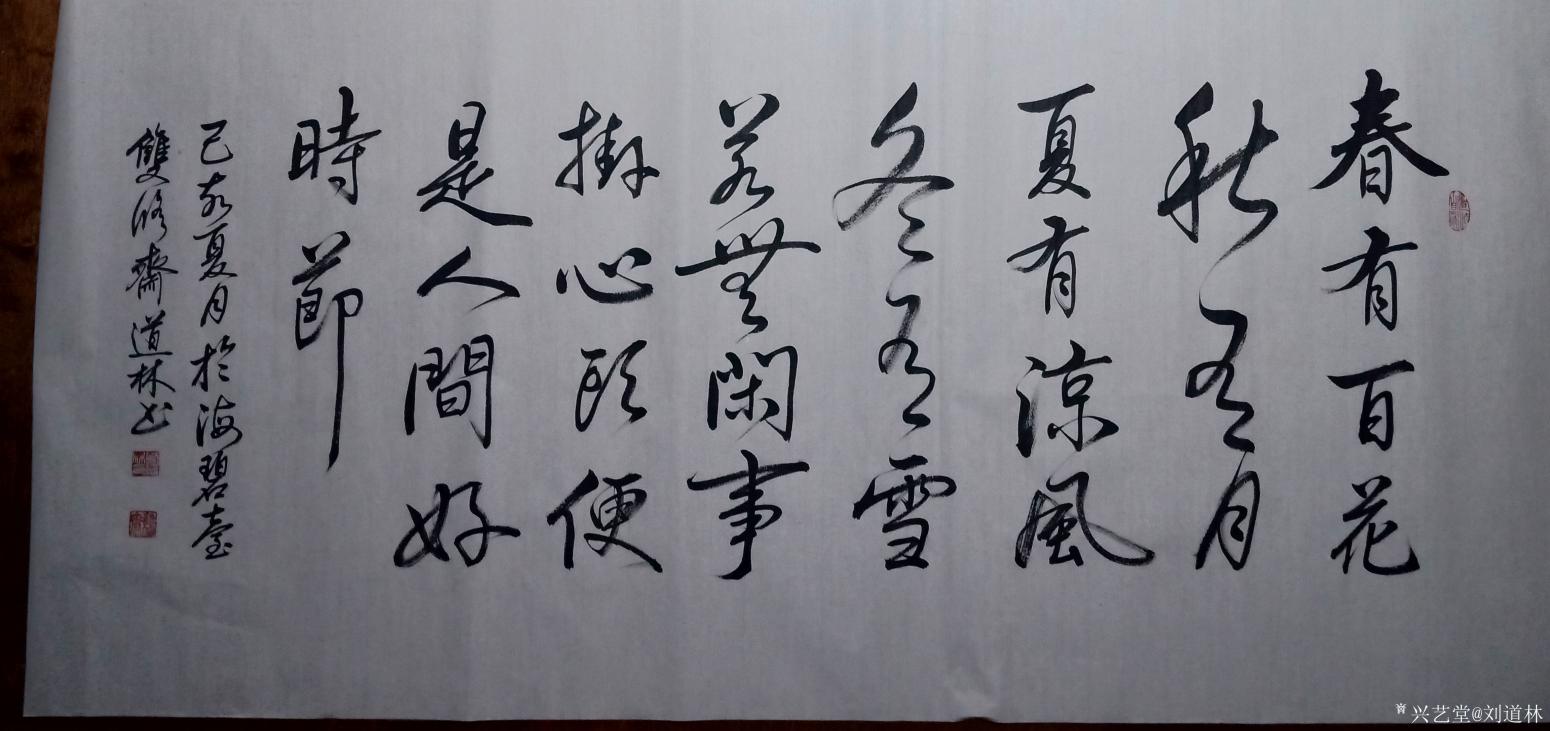 春有百花
秋有月
夏有涼風
冬有雪
若無閑事
掛心頭便
是人間好
時節
己亥夏月於海碧臺
雙修齋道林書
兴艺堂@刘道林